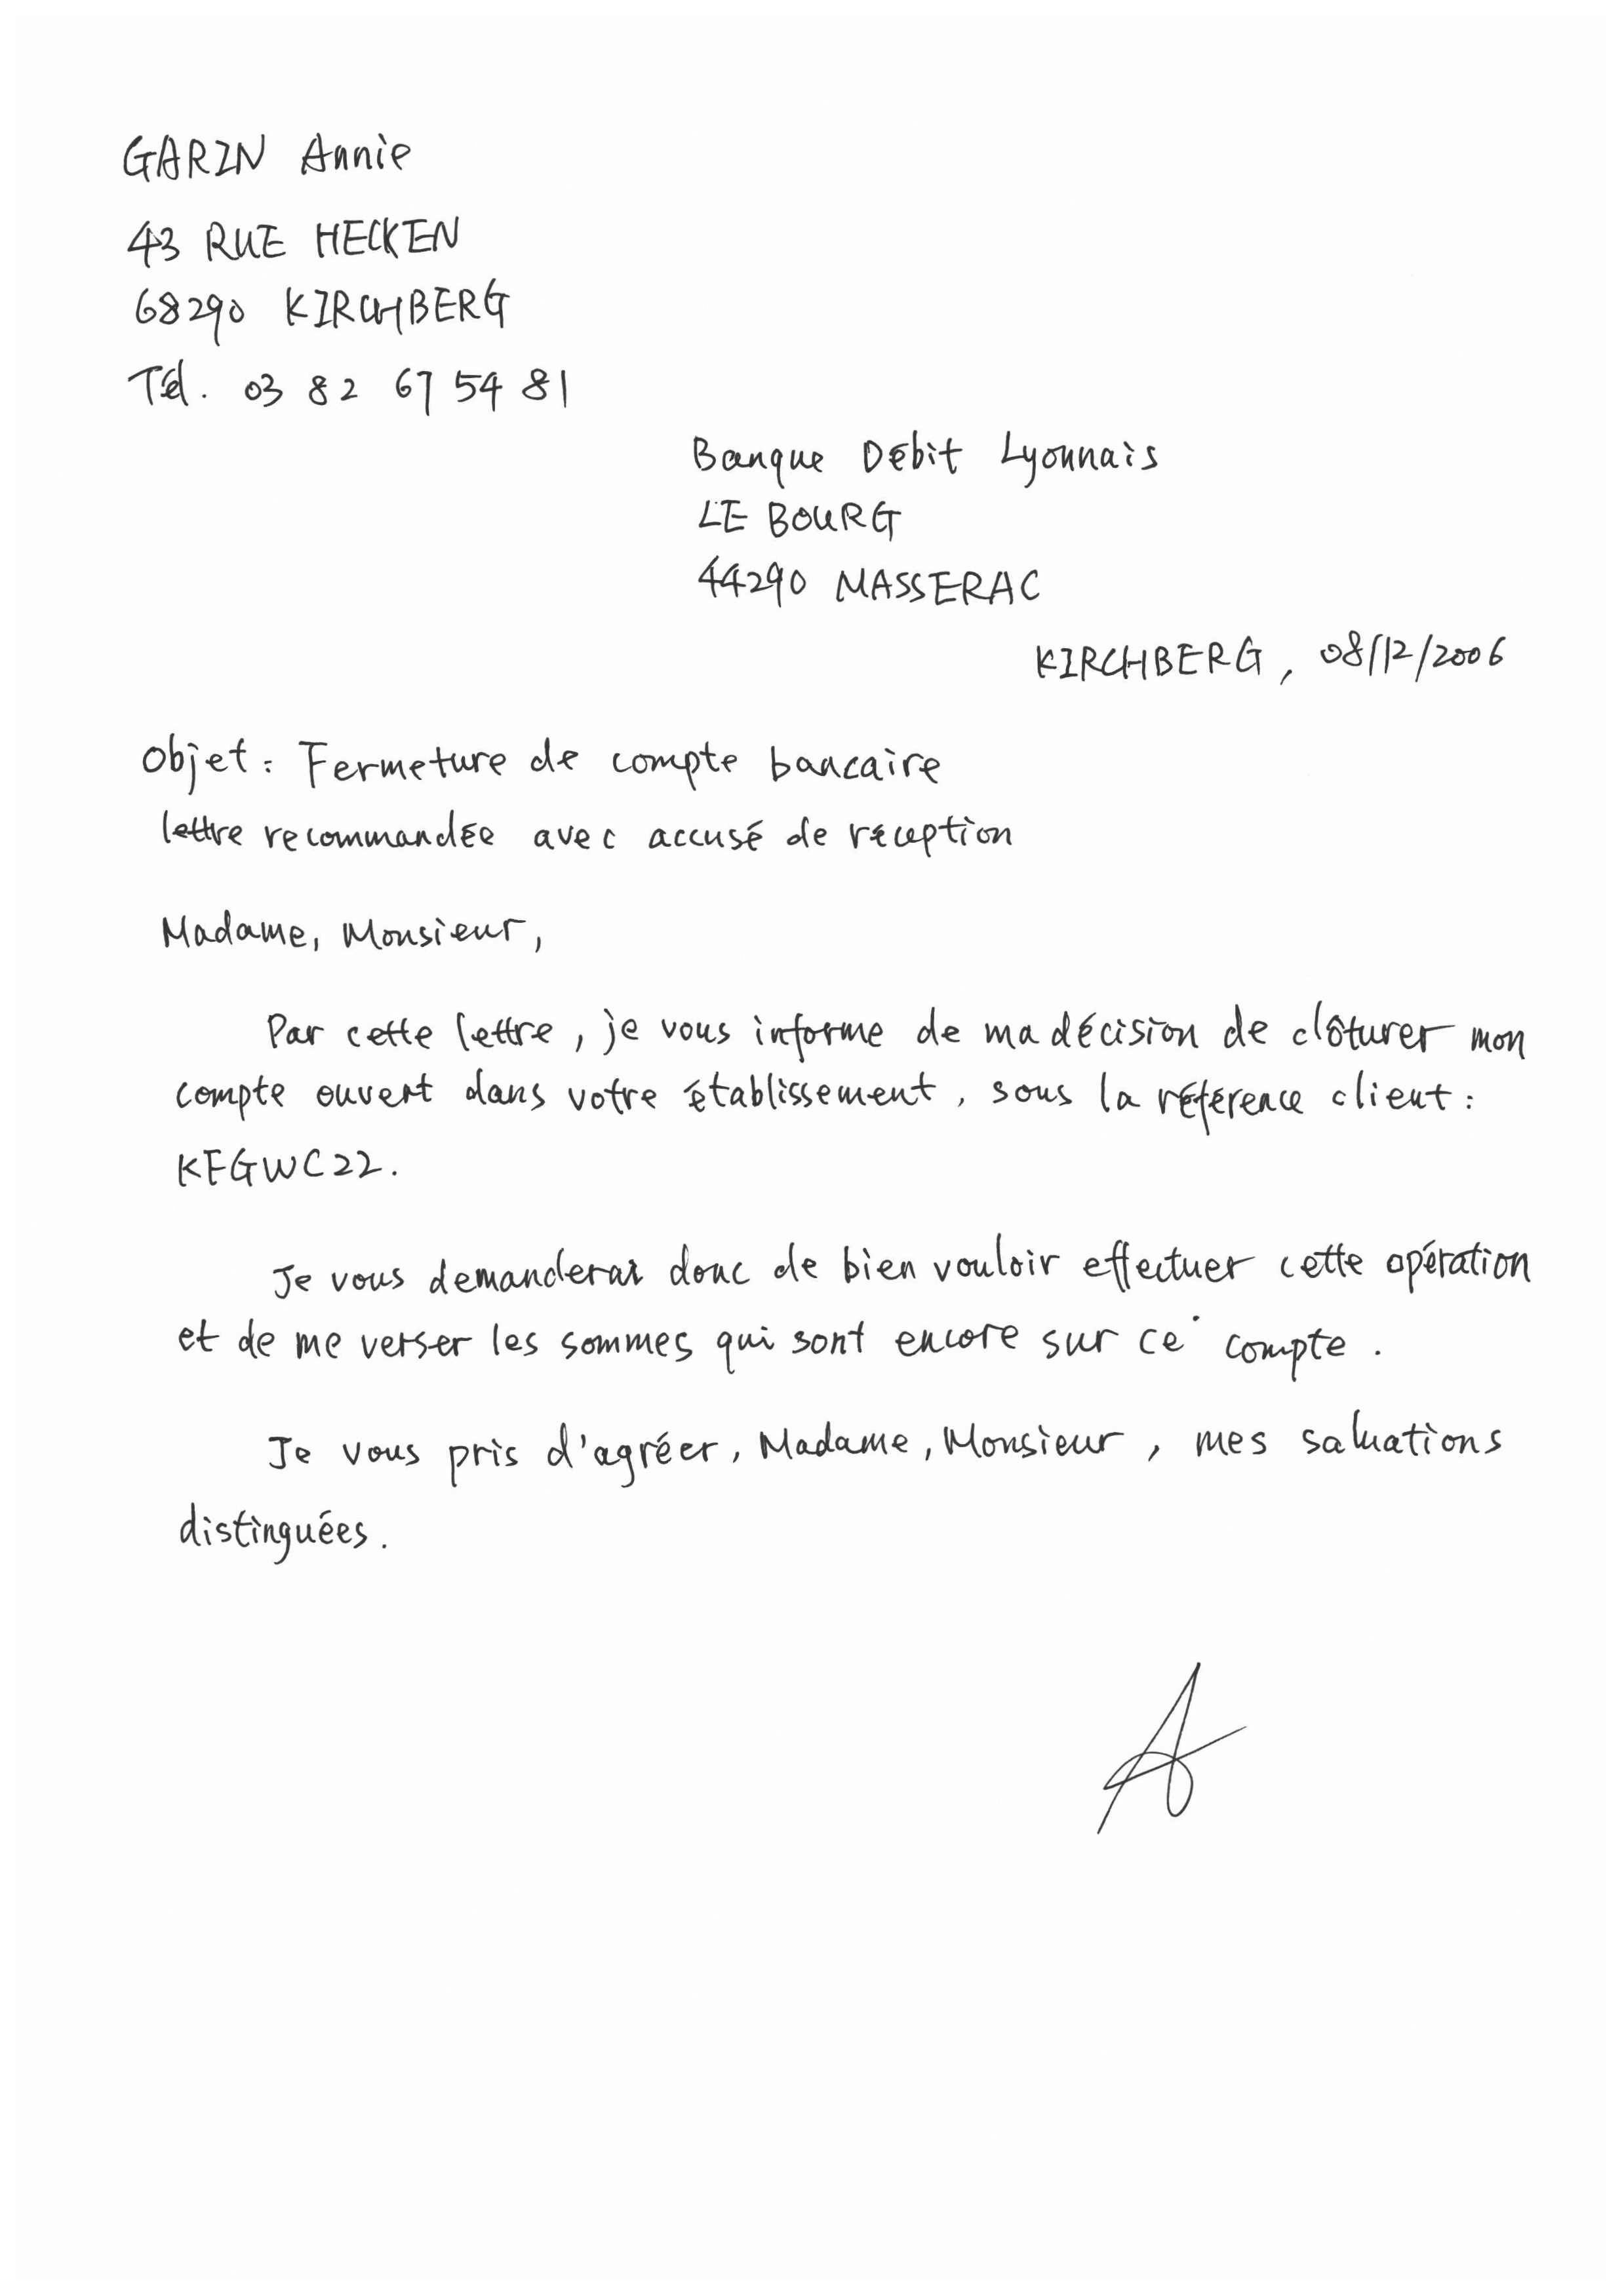 GARIN Annie
43 RUE HECKEN
68290 KIRCHBERG
Tél. 03 82 67 54 81
Banque Débit Lyonnais
LE BOURG
44290 MASSERAC
KIRCHBERG, 08/12/2006
Objet : Fermeture de compte bancaire
lettre recommandée avec accusé de réception
Madame, Monsieur,
Par cette lettre, je vous informe de ma décision de clôturer mon
compte ouvert dans votre établissement, sous la référence client :
KFGWC22.
Je vous demanderai donc de bien vouloir effectuer cette opération
et de me verser les sommes qui sont encore sur ce compte.
Je vous pris d'agréer, Madame, Monsieur, mes saluations
distinguées.